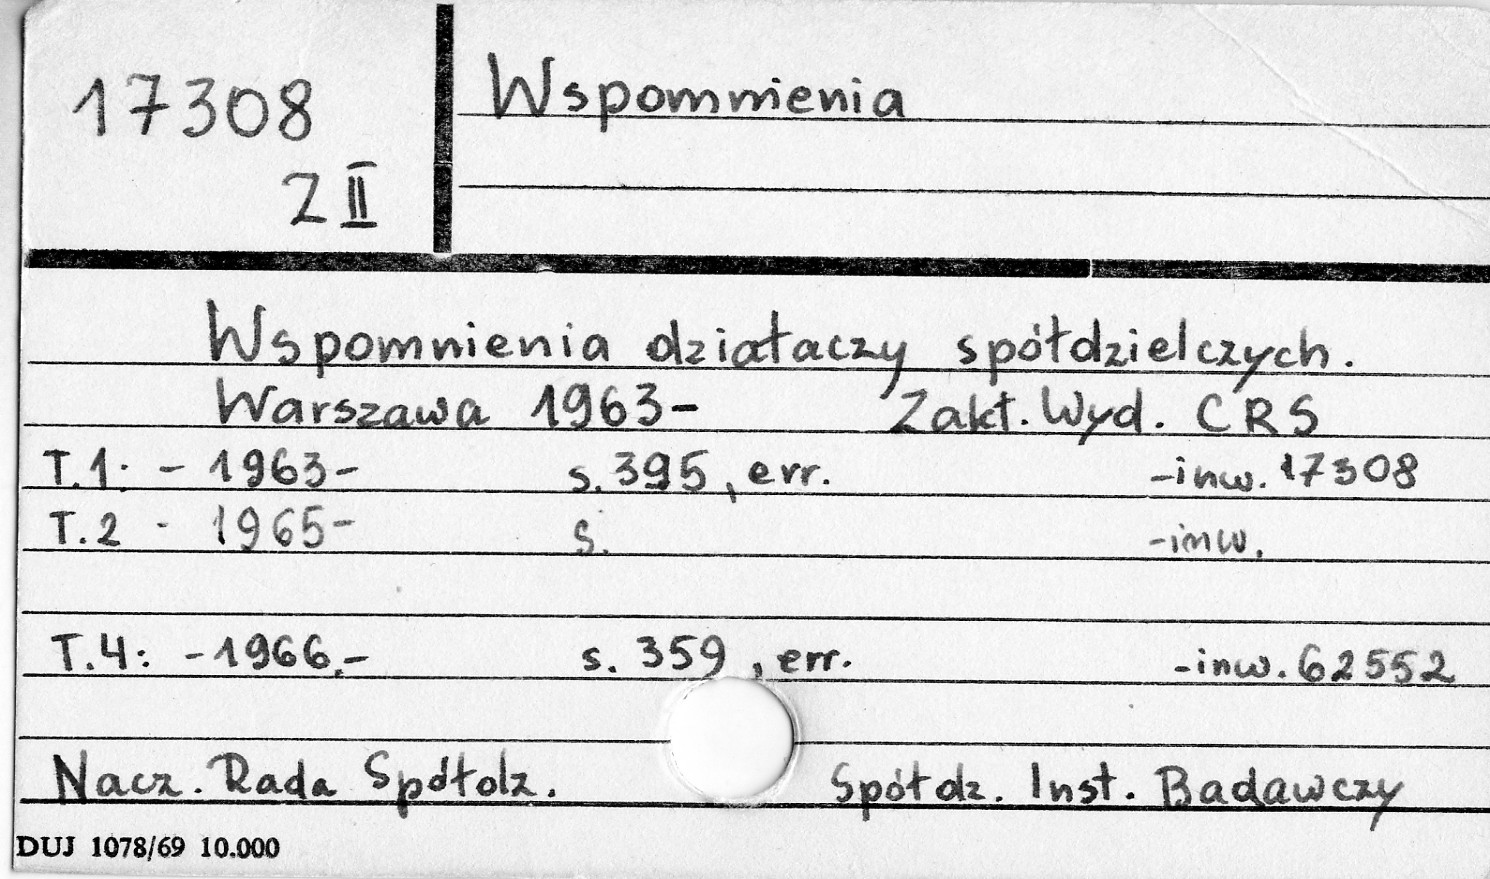 17308
Z II
Wspomnienia
Wspomnienia działaczy spółdzielczych.
Warszawa 1963- Zakł. Wyd. CRS
T.1: - 1963- s. 395, err. -inw. 17308
T.2 - 1965- s. -inw.
T.4: -1966,- s. 359, err. -inw. 62552
Nacz. Rada Spółdz. Spółdz. Inst. Badawczy
DUJ 1078/69 10.000